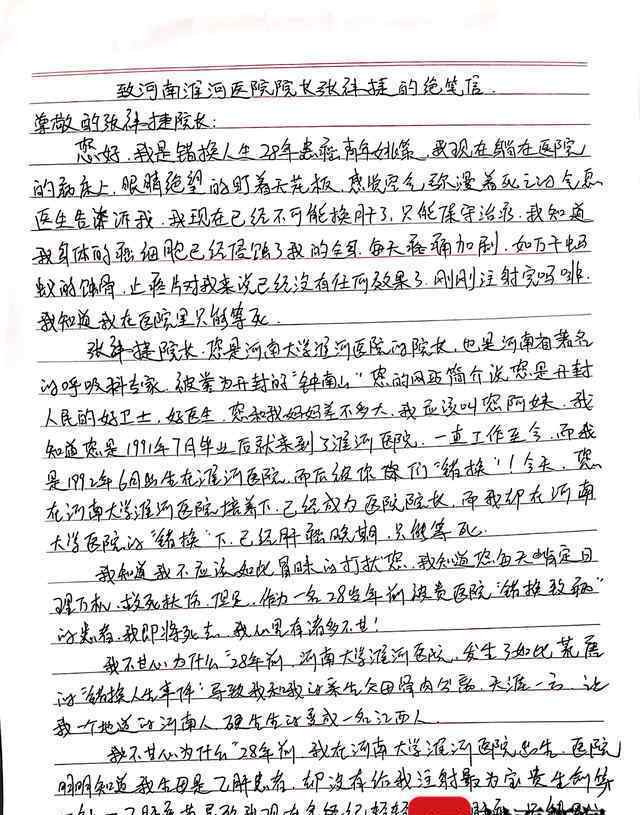 致河南淮河医院院长张祎捷的绝笔信.
尊敬的张祎捷院长:
您好,我是错换人生28年患癌青年姚策,我现在躺在医院
的病床上,眼睛绝望的盯着天花板,感觉空气弥漫着死亡的气息
医生告诉我,我现在已经不可能换肝了,只能保守治疗,我知道
我身体的癌细胞已经侵蚀了我的全身,每天疼痛加剧,如万千蚂
蚁的蚀骨,止疼片对我来说已经没有任何效果了,刚刚注射完吗啡.
我知道我在医院里只能等死.
张祎捷院长,您是河南大学淮河医院的院长,也是河南省著名
的呼吸科专家,被誉为开封的"钟南山"您的网站简介说您是开封
人民的好卫士,好医生,您和我妈妈差不多大,我应该叫您阿姨,我
知道您是1991年7月毕业后就来到了淮河医院,一直工作至今,而我
是1992年6月出生在淮河医院,而后被你院们"错换"!今天,您
在河南大学淮河医院培养下,已经成为医院院长,而我却在河南
大学医院的"错换"下,已经肝癌晚期,只能等死.
我知道我不应该如此冒昧的打扰您,我知道您每天肯定日
理万机,救死扶伤,但是,作为一名28岁年前被贵医院"错换致癌"
的患者,我即将死去,我心里有诸多不甘!
我不甘心为什么"28年前,河南大学淮河医院,发生了如此荒唐
的"错换人生事件"导致我和我的亲生父母骨肉分离,天涯一方,让
我一个地道的河南人,硬生生的变成一名江西人.
我不甘心为什么"28年前,我在河南大学淮河医院出生,医院
明明知道我生母是乙肝患者,却没有给我注射最为宝贵生的第